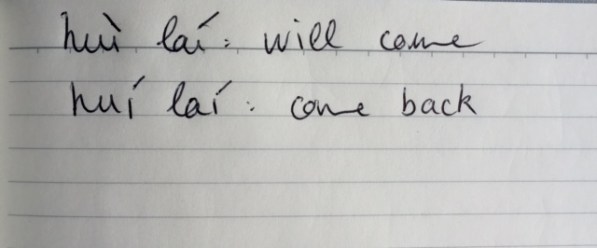 huì laí: will come
huí laí: come back